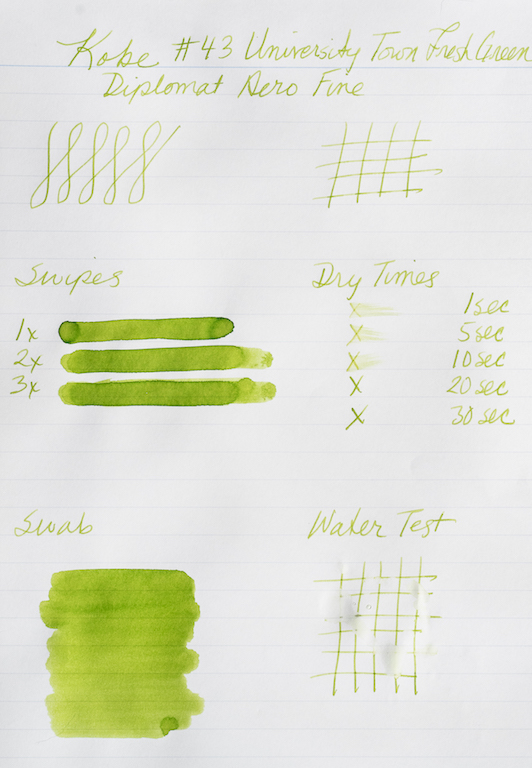 Kobe #43 University Town Fresh Green
Diplomat Aero Fine
Swipes
1x
2x
3x
Dry Times
X 1 sec
X 5 sec
X 10 sec
X 20 sec
X 30 sec
Swab
Water Test